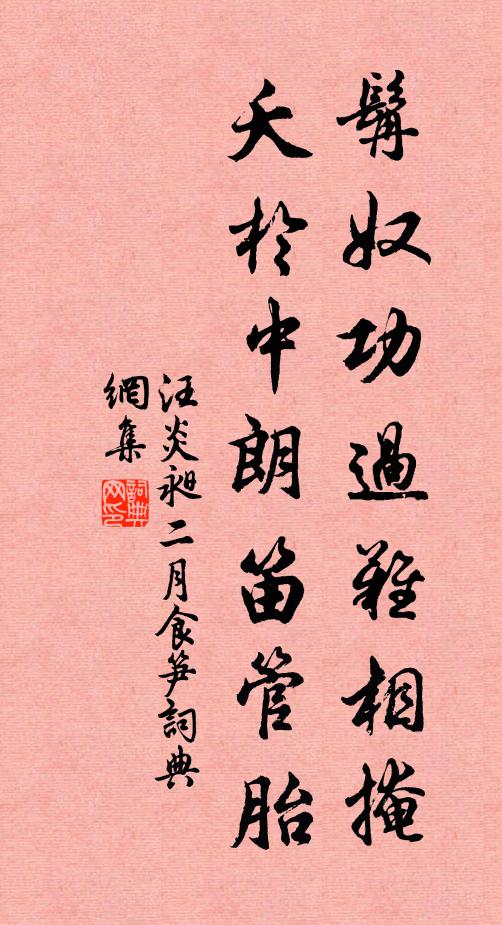 髯奴功過難相掩
夭於中朗笛管胎
汪炎昶二月食笋詞典
網集
詞典
网印